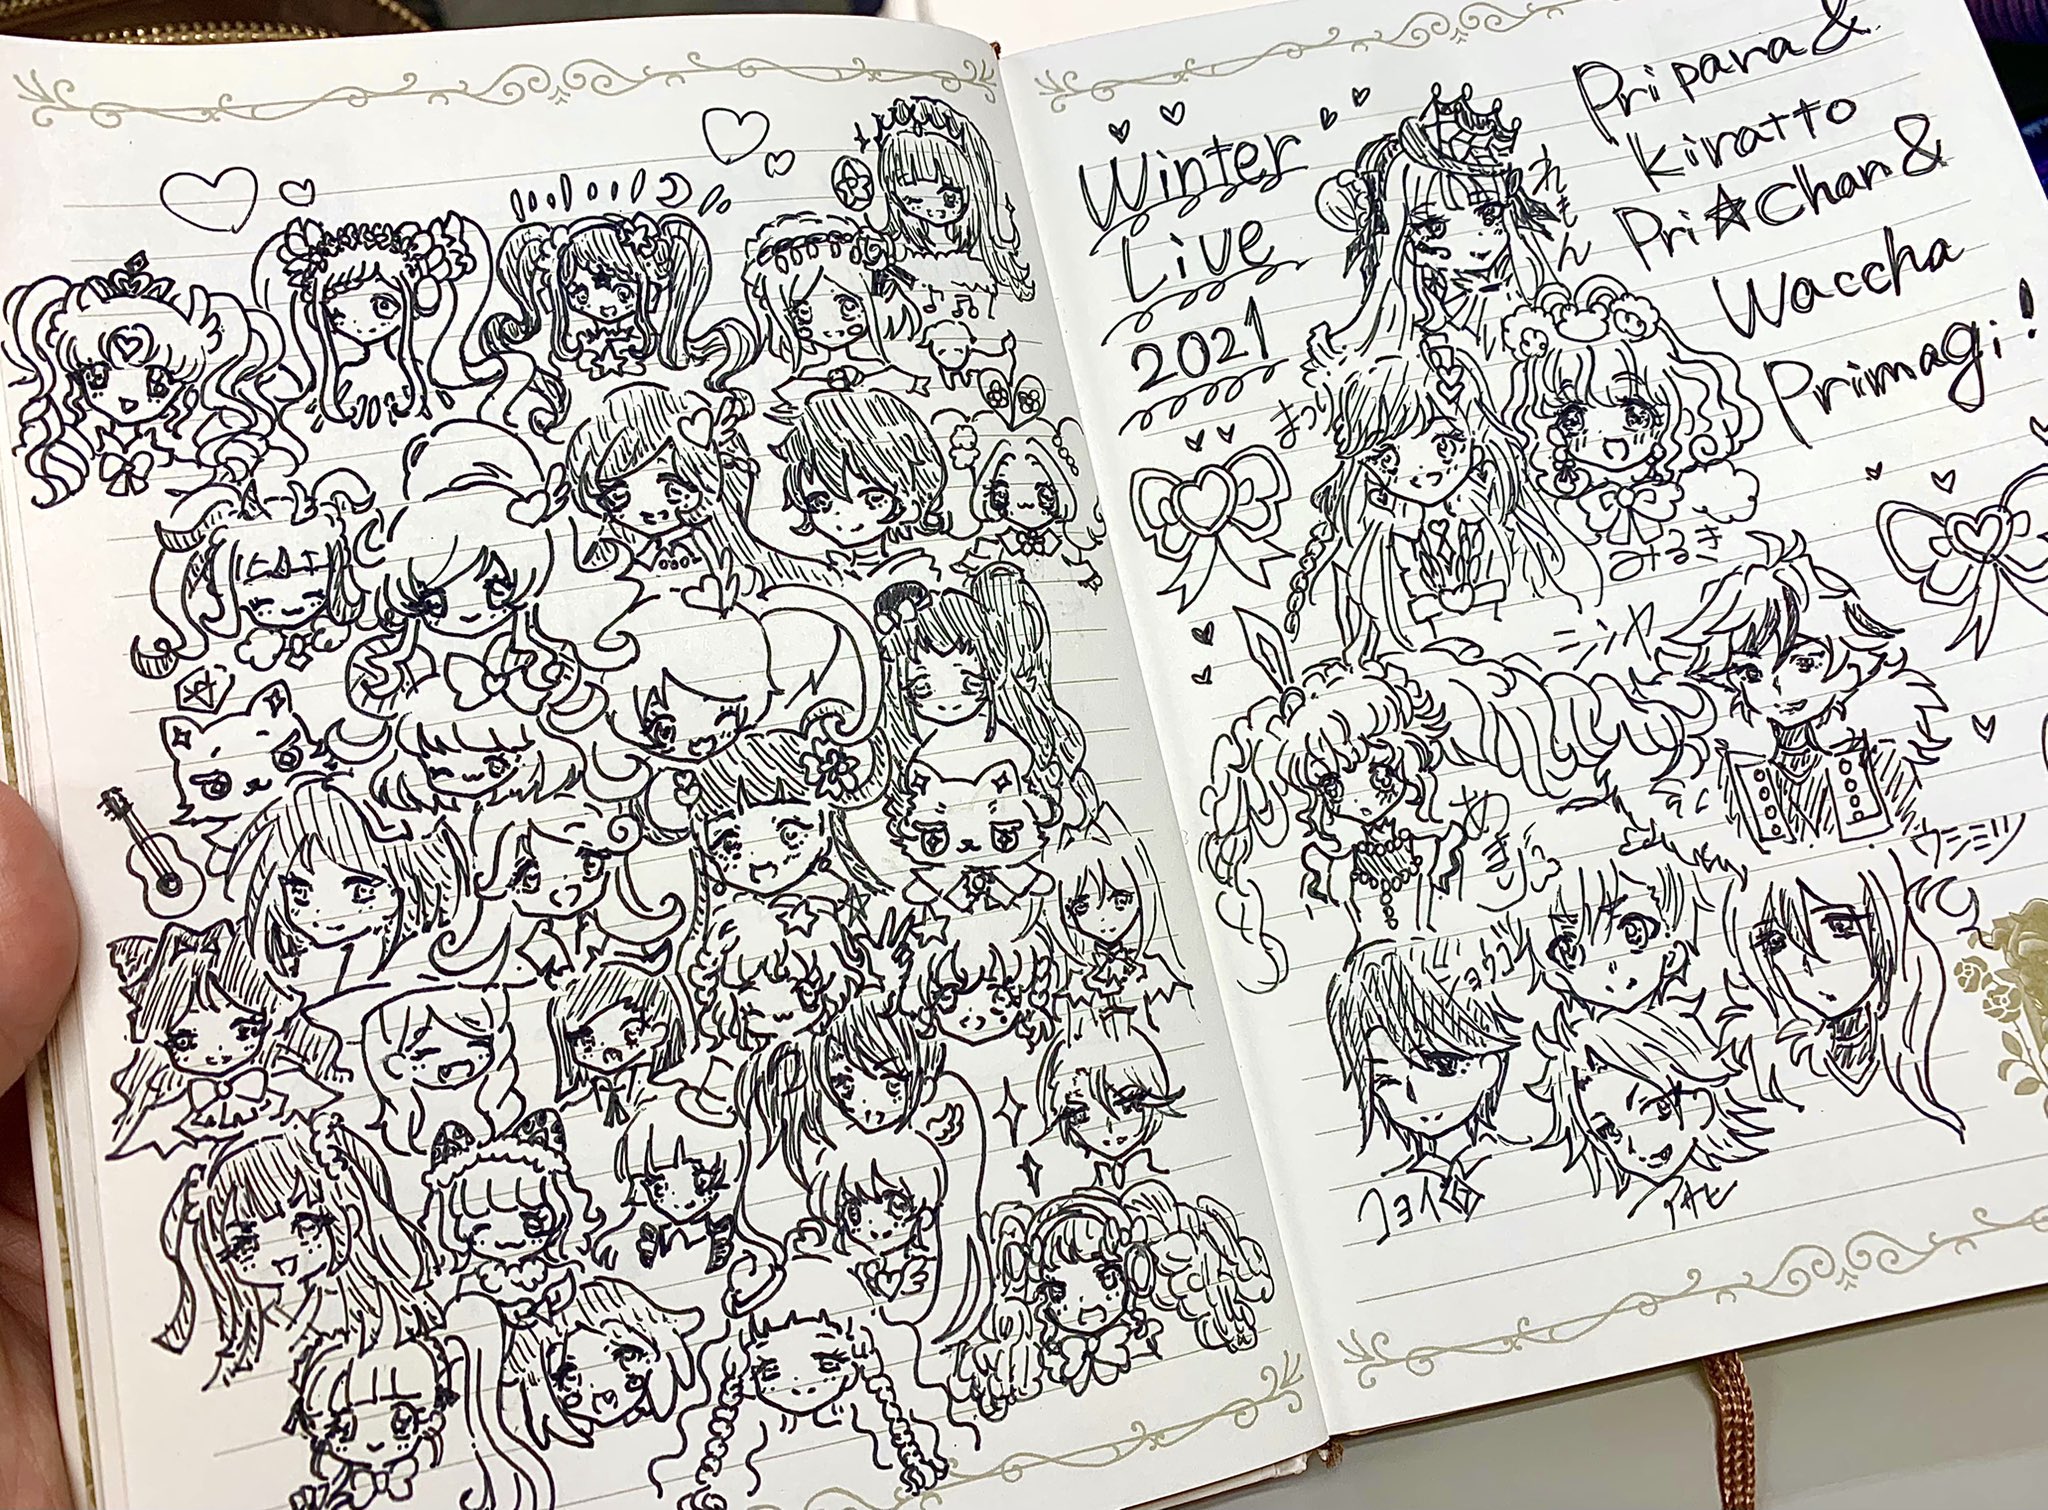 Winter
Live
2021
Pripara &
Kiratto
Pri☆Chan &
Waccha
Primagi!
れもん
まつり
みるき
ジンヤ
あまね
ウシミツ
アサヒ